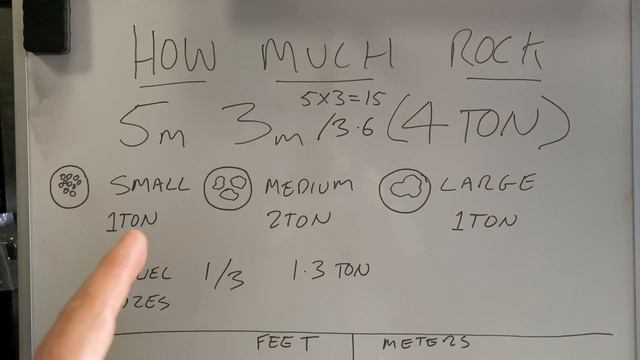 HOW MUCH ROCK
5×3=15
5m 3m /3.6 (4 TON)
SMALL MEDIUM LARGE
1TON 2TON 1TON
1/3 1.3 TON
FEET METERS